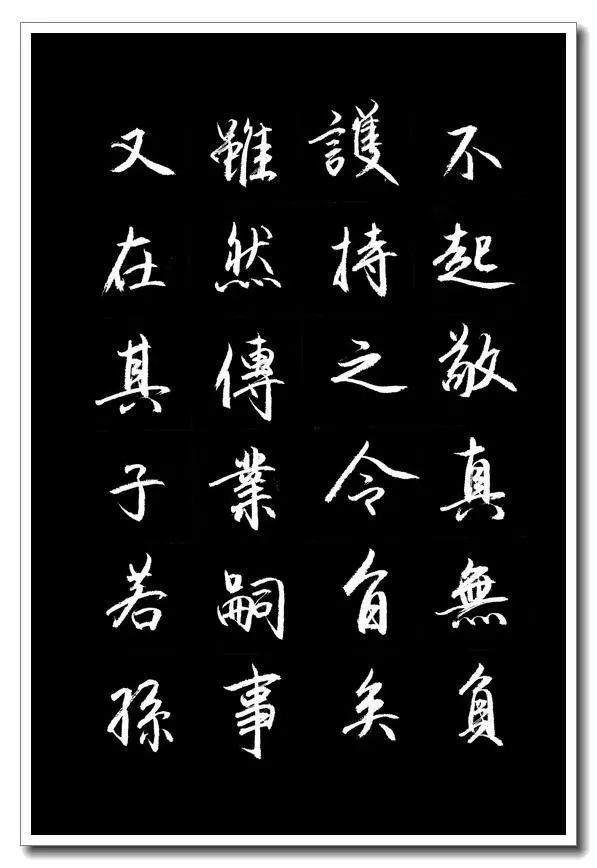 不起敬真無負
護持之令自矣
雖然傳業嗣事
又在其子若孫